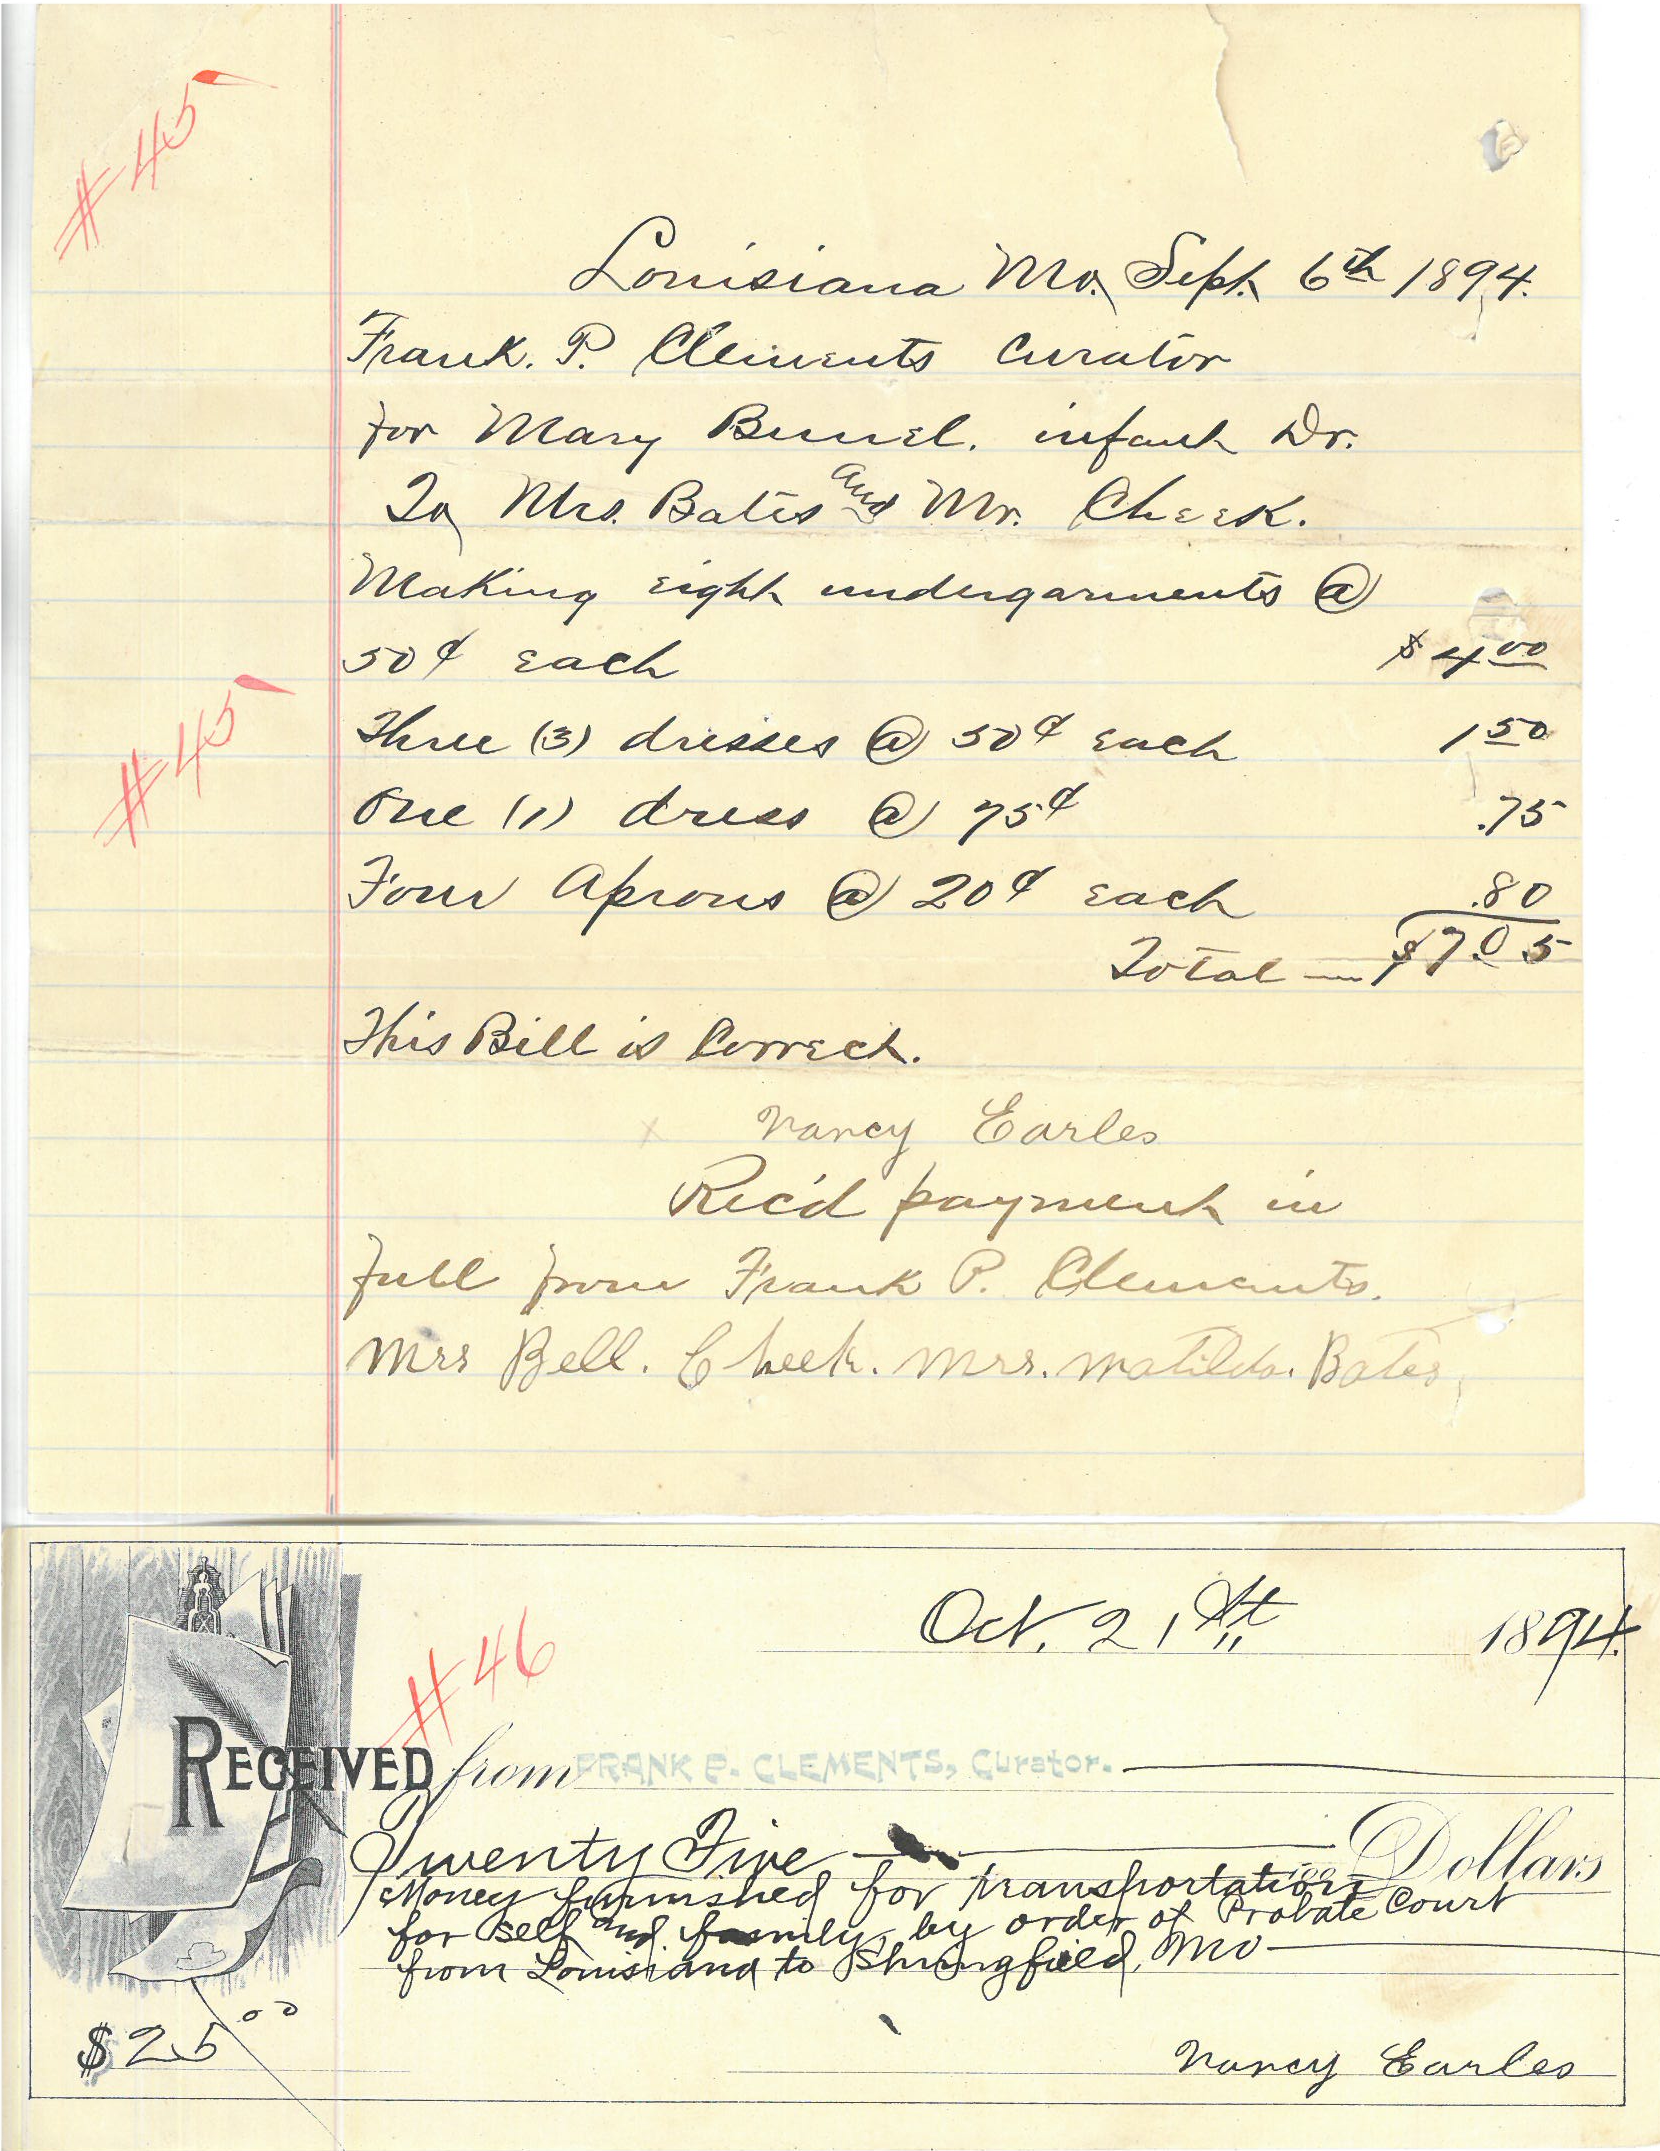 #45
Louisiana Mo. Sept. 6th 1894.
Frank. P. Clements Curator
for Mary Bunel. infant Dr.
To Mrs. Bates and Mr. Cheek.
Making eight undergarments @
50¢ each $4.00
#45
Three (3) dresses @ 50¢ each 1.50
One (1) dress @ 75¢ .75
Four Aprons @ 20¢ each .80
Total — $7.05
This Bill is Correct.
x Nancy Earles
Rec'd payment in
full from Frank P. Clements.
Mrs Bell. Cheek. Mrs. Matilda. Bates,
Oct. 21st 1894.
#46
RECEIVED from FRANK P. CLEMENTS, Curator.
Twenty Five Dollars
Money furnished for transportation
for self and family, by order of Probate Court
from Louisiana to Springfield, Mo
$25.00
Nancy Earles